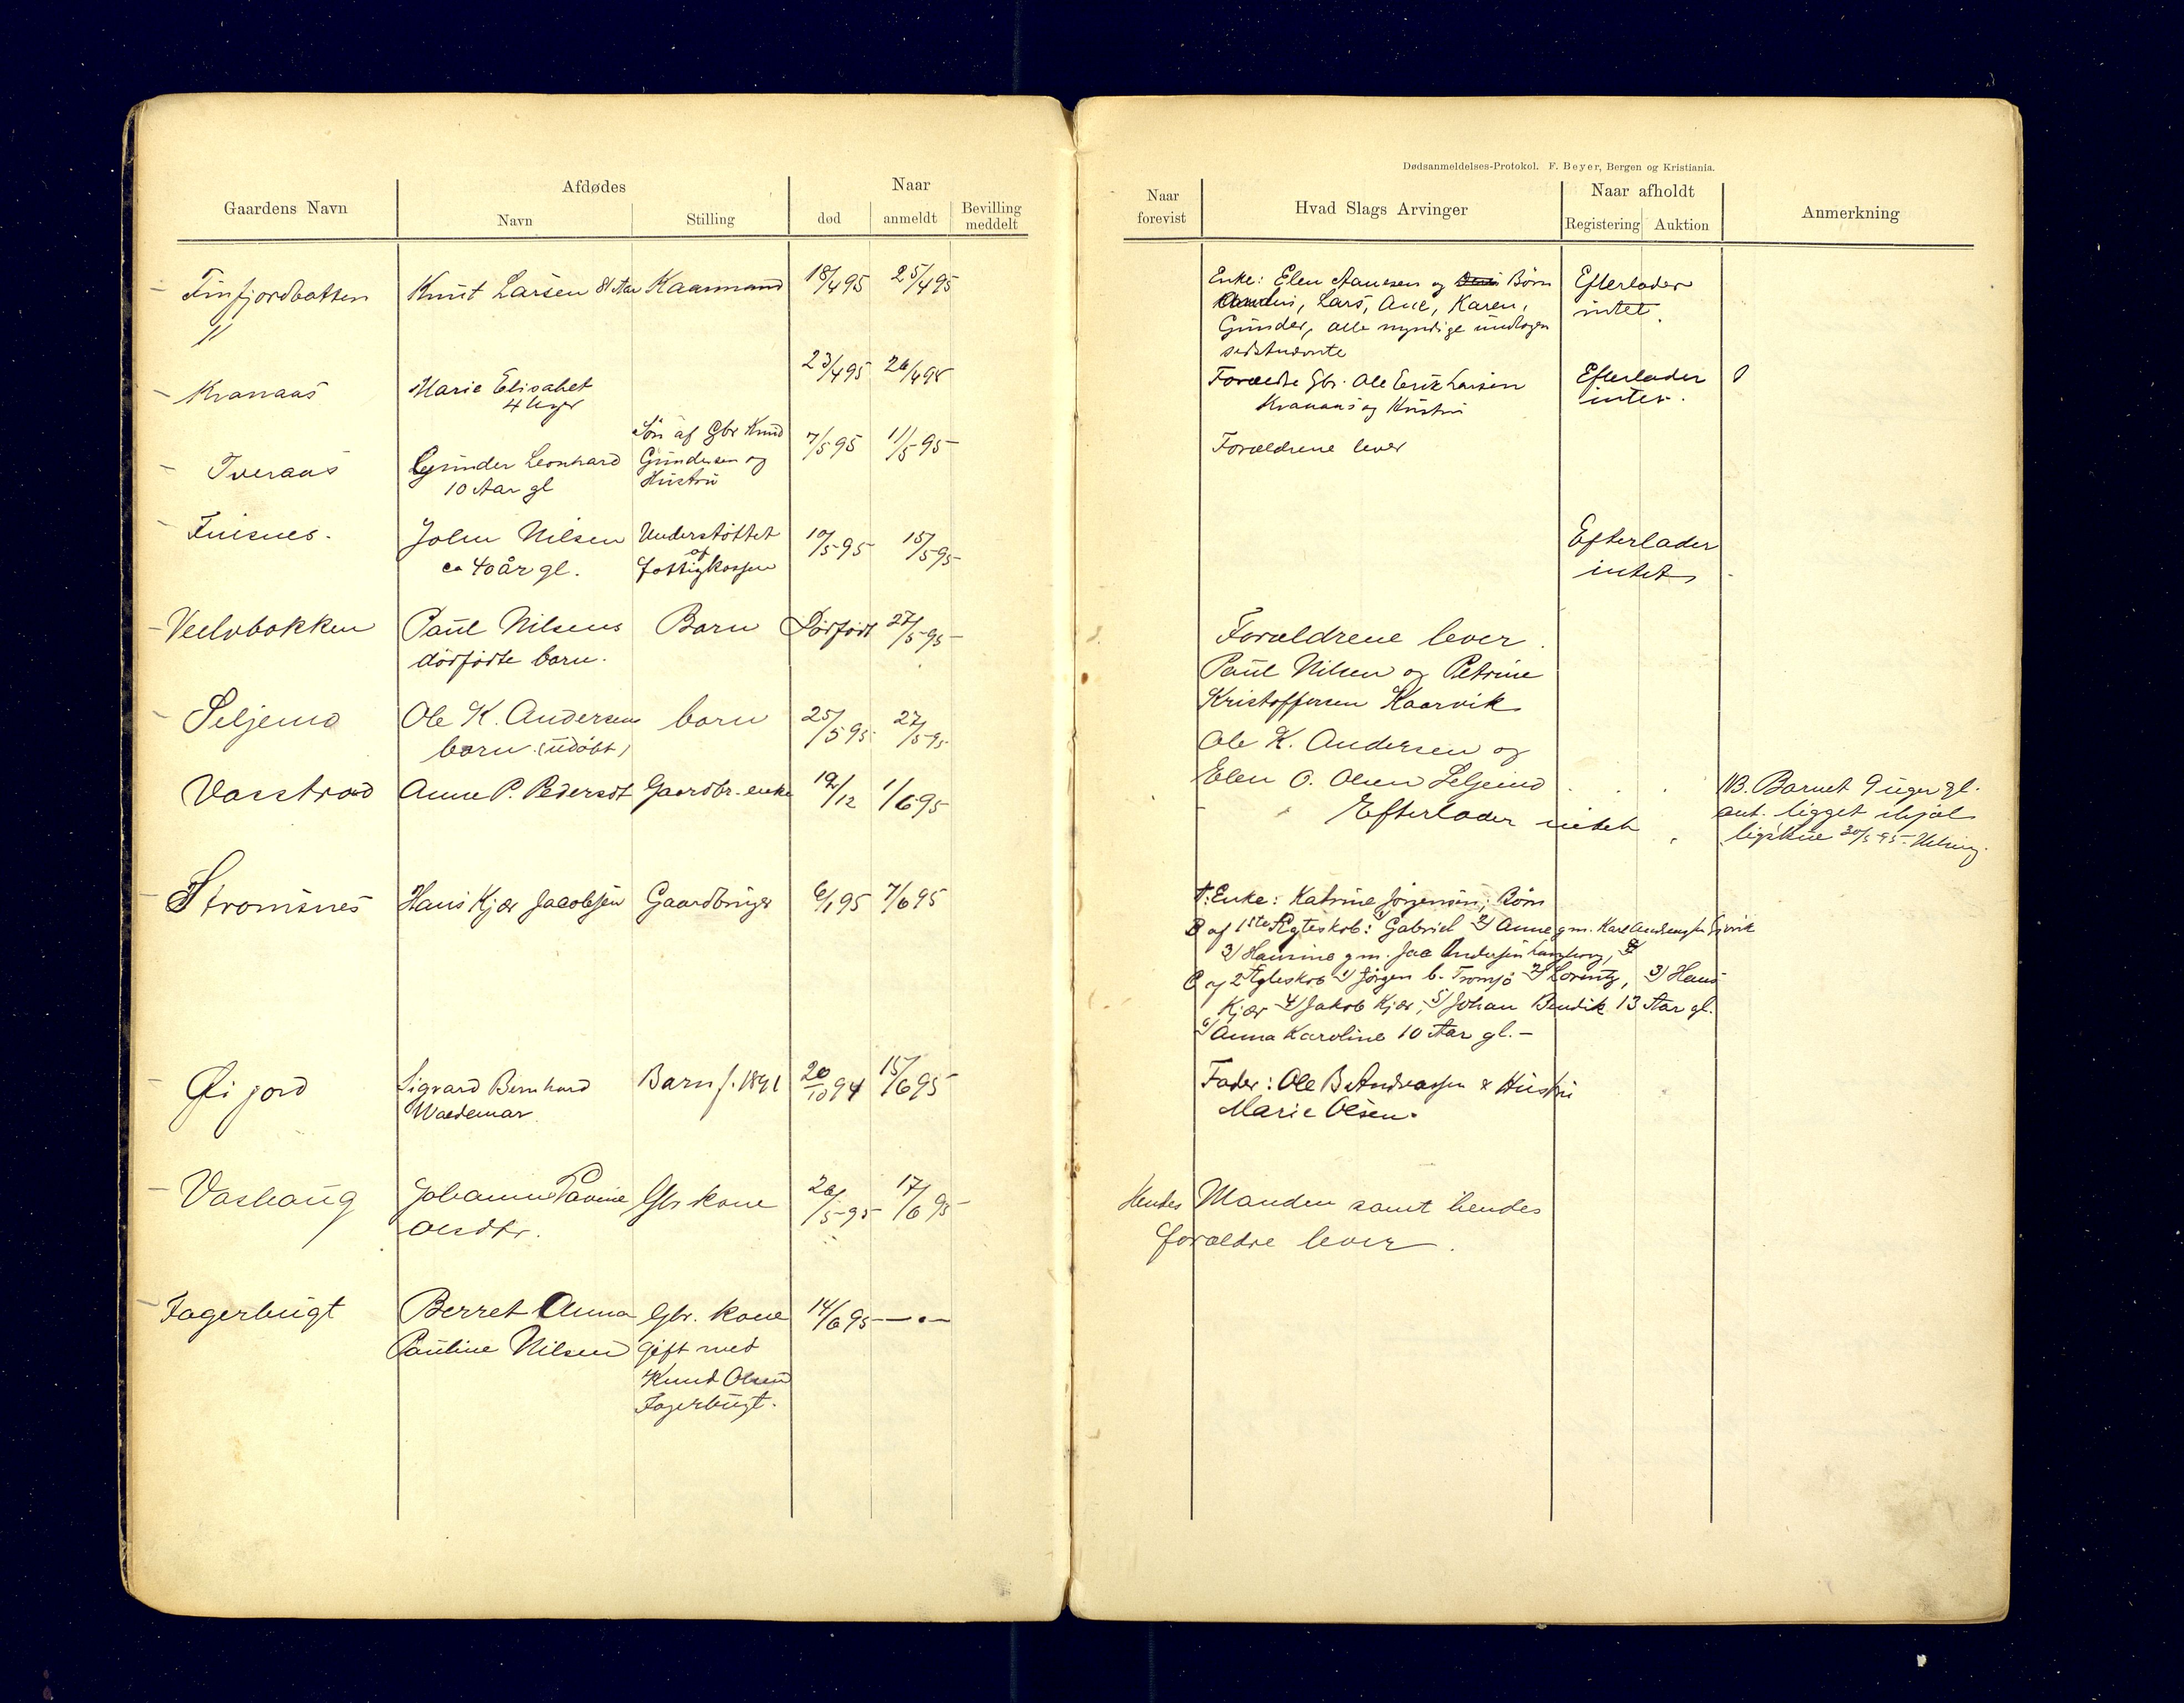 Gaardens Navn
Afdødes
Navn
Stilling
Naar
død
anmeldt
Bevilling meddelt
Finfjordbotten
Knut Larsen 81 Aar
Kaarmand
18/4 95
25/4 95
Kranaas
Marie Elisabet
4 Uger
23/4 95
26/4 95
Tveraas
Gunder Leonhard
10 Aar gl
Søn af Gbr Knud
Gundersen og
Hustru
7/5 95
11/5 95
Finsnes.
John Nilsen
ca 40 år gl.
Understøttet
af
fattigkassen
10/5 95
15/5 95
Paul Nilsens
dødfødte barn.
Barn
Dødfødt
27/5 95
Seljemo
Ole K. Andersens
barn (udøbt)
barn
25/5 95
27/5 95
Vasstrand
Anne P. Pedersdt
Gaardbr. enke
19/12
1/6 95
Strømsnes
Hans Kjær Jacobsen
Gaardbruger
6/1 95
7/6 95
Øijord
Sigvard Bernhard
Waldemar.
Barn f. 1891
20/10 94
15/6 95
Vashaug
Johanne Pavine
Olsdtr.
Gbr kone
26/5 95
17/6 95
Fagerbugt
Berret Anna
Pauline Nilsen
Gbr. kone
gift med
Knud Olsen
Fagerbugt.
14/6 95
— " —
Dødsanmeldelses-Protokol. F. Beyer, Bergen og Kristiania.
Naar forevist
Hvad Slags Arvinger
Naar afholdt
Registering
Auktion
Anmerkning
Enke: Elen Hansen og Børn
Lars, Ane, Karen,
Gunder, alle myndige undtagen
sidstnævnte
Efterlader
intet.
Forældre Gbr. Ole Erik Larsen
Kranaas og Hustru
Efterlader
intet.
Forældrene lever
Efterlader
intet
Forældrene lever.
Paul Nilsen og Petrine
Kristoffersen Kaarvik
Ole K. Andersen og
Elen O. Olsen Seljemo
NB. Barnet 9 uger gl.
ant. ligget ihjæl
30/5 95
Efterlader intet
A: Enke: Katrine Jørgensen; Børn
B af 1ste Ægteskab: 1) Gabriel 2) Anne g m. Karl
3) Hansine g m. Andersen
C af 2 Ægteskab 1) Jørgen b. Tromsø 2) Lorentz, 3) Hans
Kjær 4) Jakob Kjær, 5) Johan Bendik 13 Aar gl.
6) Anna Karoline 10 Aar gl. –
Fader: Ole B Andreassen & Hustru
Marie Olsen.
Hendes Manden samt hendes
forældre lever.